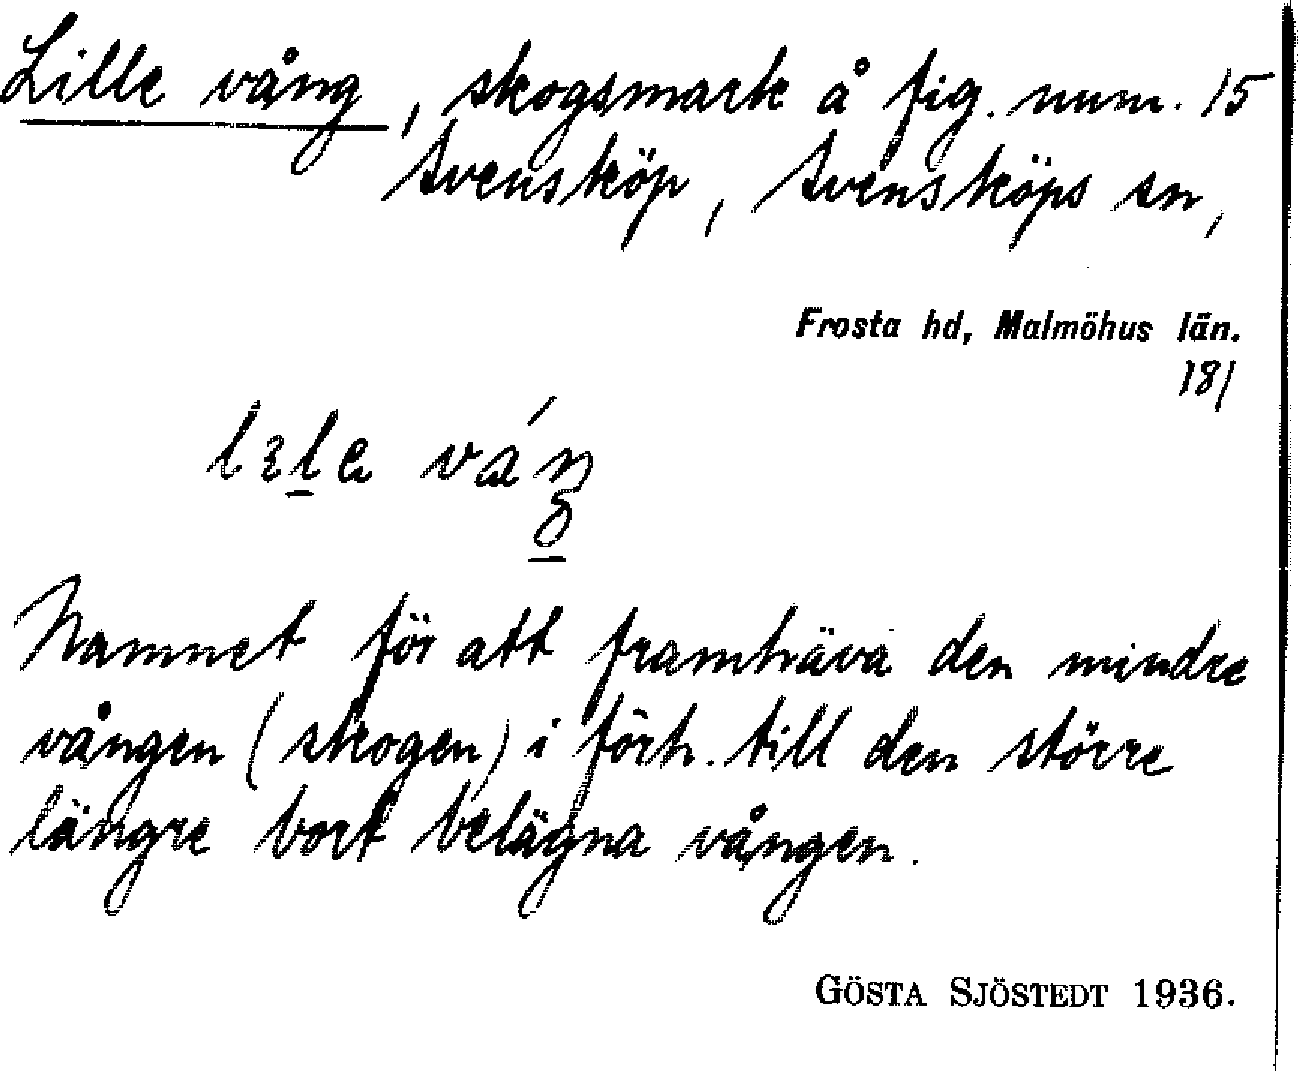 Lille vång, skogsmark å fig. num. 15
Svensköp, Svensköps sn,
Frosta hd, Malmöhus län.
181
Namnet för att framhäva den mindre
vången (skogen) i förh. till den större
längre bort belägna vången.
GÖSTA SJÖSTEDT 1936.